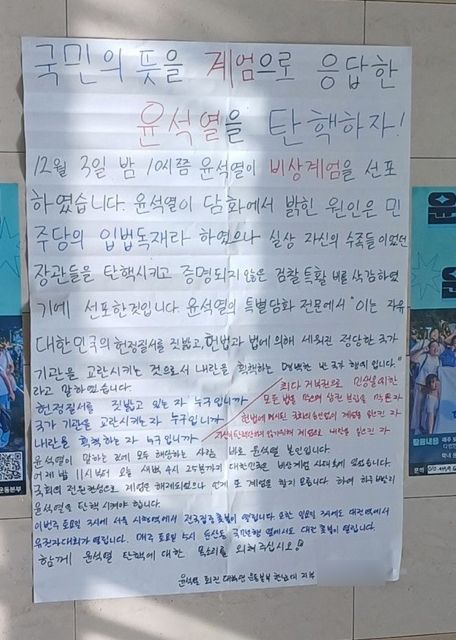 국민의 뜻을 계엄으로 응답한
윤석열을 탄핵하자!
12월 3일 밤 10시쯤 윤석열이 비상계엄을 선포
하였습니다. 윤석열이 담화에서 밝힌 원인은 민
주당의 입법독재라 하였으나 실상 자신의 수족들이었던
장관들을 탄핵시키고 증명되지 않은 검찰 특활비를 삭감하였
기에 선포한것입니다. 윤석열의 특별담화 전문에서 "이는 자유
대한민국의 헌정질서를 짓밟고, 헌법과 법에 의해 세워진 정당한 국가
기관을 교란시키는 것으로서 내란을 획책하는 명백한 반국가 행위입니다."
라고 말하였습니다.
헌정질서를 짓밟고 있는 자 누구입니까
국가 기관을 교란시키는 자 누구입니까
내란을 획책하는 자 누구입니까
모든 법을
헌법에 계엄을 일으킨 자
계엄으로 내란을 일으킨 자
윤석열이 말하는 것에 모두 해당하는 사람 바로 윤석열 본인입니다.
어제 밤 11시부터 오늘 새벽 4시 25분까지 대한민국은 비상계엄 사태에 있었습니다.
국회의 계엄은 해제되었으나 언제 또 계엄을 할지 모릅니다. 하여 하루빨리
윤석열을 탄핵 시켜야 합니다.
이번주 토요일 3시에 서울 시청역에서 전국집중촛불이 열립니다. 또한 일요일 3시에도 대전역에서
열립니다. 매주 토요일 5시 둔산동 국민은행 앞에서도 대전 촛불이 열립니다.
함께 윤석열 탄핵에 대한 목소리를 외쳐 주십시오!
윤석열 퇴진 대학생 운동본부 한남대 지부